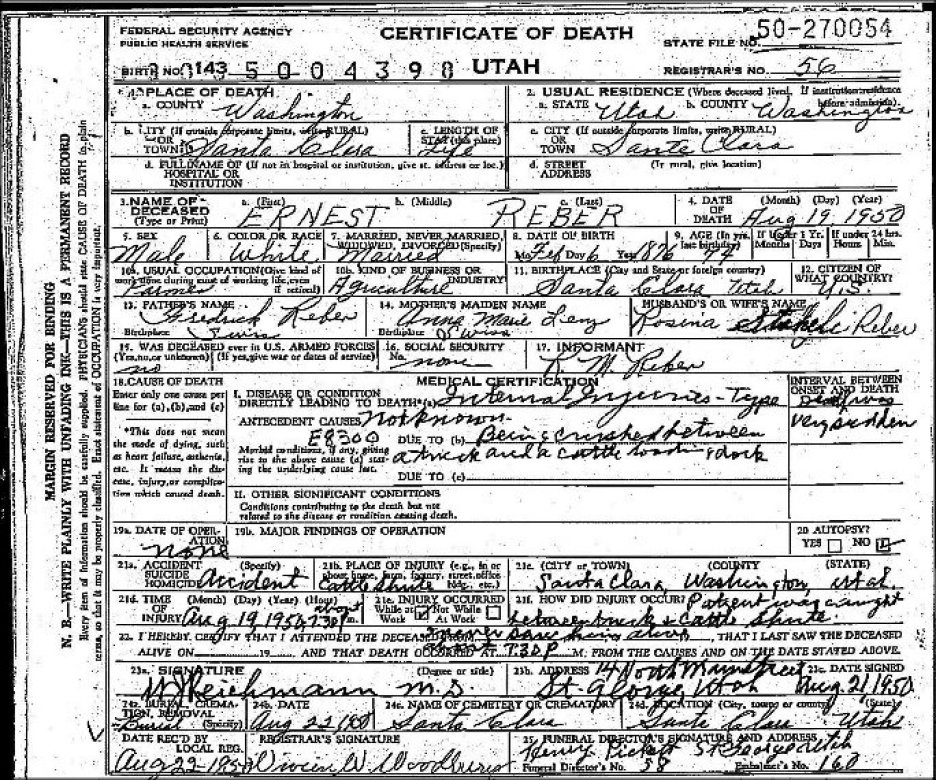 FEDERAL SECURITY AGENCY
PUBLIC HEALTH SERVICE
CERTIFICATE OF DEATH
STATE FILE NO. 50-270054
BIRTH NO. 143 5004398
UTAH
REGISTRAR'S NO. 56
MARGIN RESERVED FOR BINDING
N. B.—WRITE PLAINLY WITH UNFADING INK—THIS IS A PERMANENT RECORD
Every item of information should be carefully supplied. PHYSICIANS should state CAUSE OF DEATH in plain
terms, so that it may be properly classified. Exact statement of OCCUPATION is very important.
1. PLACE OF DEATH
a. COUNTY Washington
2. USUAL RESIDENCE (Where deceased lived. If institution: residence before admission).
a. STATE Utah b. COUNTY Washington
b. CITY (If outside corporate limits, write RURAL) OR TOWN Santa Clara
c. LENGTH OF STAY (this place) Life
c. CITY (If outside corporate limits, write RURAL) OR TOWN Santa Clara
d. FULL NAME OF (If not in hospital or institution, give st. address or loc.) HOSPITAL OR INSTITUTION
d. STREET ADDRESS (If rural, give location)
3. NAME OF DECEASED (Type or Print)
a. (First) ERNEST
b. (Middle)
c. (Last) REBER
4. DATE OF DEATH (Month) (Day) (Year) Aug 19 1950
5. SEX Male
6. COLOR OR RACE White
7. MARRIED, NEVER MARRIED, WIDOWED, DIVORCED (Specify) Married
8. DATE OF BIRTH Mo. Feb Day 6 Year 1876
9. AGE (In yrs. last birthday) 74
If Under 1 Yr. Months Days
If under 24 hrs. Hours Min.
10a. USUAL OCCUPATION (Give kind of work done during most of working life, even if retired) Farmer
10b. KIND OF BUSINESS OR INDUSTRY Agriculture
11. BIRTHPLACE (City and State or foreign country) Santa Clara Utah
12. CITIZEN OF WHAT COUNTRY? U.S.
13. FATHER'S NAME Fredrick Reber
Birthplace Swiss
14. MOTHER'S MAIDEN NAME Anna Marie
Birthplace Swiss
HUSBAND'S OR WIFE'S NAME
Rosina Staheli Reber
15. WAS DECEASED ever in U.S. ARMED FORCES (Yes, no, or unknown) (If yes, give war or dates of service) no
16. SOCIAL SECURITY No. none
17. INFORMANT R. M. Reber
18. CAUSE OF DEATH
Enter only one cause per line for (a), (b), and (c)
MEDICAL CERTIFICATION
INTERVAL BETWEEN ONSET AND DEATH
Death was very sudden
I. DISEASE OR CONDITION DIRECTLY LEADING TO DEATH* (a) Internal Injuries - Type
Not known
*This does not mean the mode of dying, such as heart failure, asthenia, etc. It means the disease, injury, or complication which caused death.
ANTECEDENT CAUSES
E8300
DUE TO (b) Being crushed between
a truck and a cattle loading dock
Morbid conditions, if any, giving rise to the above cause (a) stating the underlying cause last.
DUE TO (c)
II. OTHER SIGNIFICANT CONDITIONS
Conditions contributing to the death but not related to the disease or condition causing death.
19a. DATE OF OPERATION none
19b. MAJOR FINDINGS OF OPERATION
20 AUTOPSY?
YES NO
21a. ACCIDENT SUICIDE HOMICIDE (Specify) Accident
21b. PLACE OF INJURY (e.g., in or about home, farm, factory, street, office bldg., etc.) Cattle Shute
21c. (CITY or TOWN) (COUNTY) (STATE)
Santa Clara, Washington, Utah
21d. TIME OF INJURY (Month) (Day) (Year) (Hour) Aug 19, 1950 about 7:30 P m.
21e. INJURY OCCURRED While at Work Not While At Work
21f. HOW DID INJURY OCCUR? Patient was caught
between truck & Cattle Shute.
22. I HEREBY CERTIFY THAT I ATTENDED THE DECEASED never saw him alive, THAT I LAST SAW THE DECEASED
ALIVE ON 19 AND THAT DEATH OCCURRED AT 7:30 P M. FROM THE CAUSES AND ON THE DATE STATED ABOVE.
23a. SIGNATURE (Degree or title)
M.D.
23b. ADDRESS 14 North Main Street
St. George, Utah
23c. DATE SIGNED
Aug 21 1950
24a. BURIAL, CREMATION, REMOVAL (Specify) Burial
24b. DATE Aug 22 1950
24c. NAME OF CEMETERY OR CREMATORY Santa Clara
24d. LOCATION (City, town, or county) (State)
Santa Clara Utah
DATE REC'D BY LOCAL REG. Aug 22-1950
REGISTRAR'S SIGNATURE
25. FUNERAL DIRECTOR'S SIGNATURE AND ADDRESS
Henry Pickett St George Utah
Funeral Director's No. 58 Embalmer's No. 160